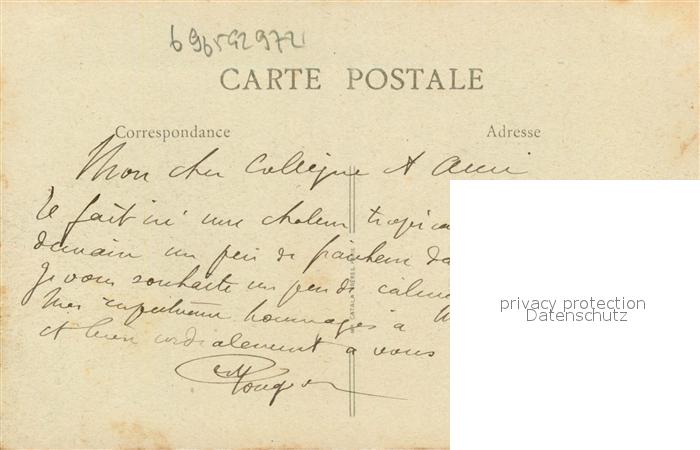 CARTE POSTALE
Correspondance
Adresse
Mon cher Collègue et Ami
Il fait ici une chaleur tropica
demain un peu de fraicheur da
Je vous souhaite un peu de calme
Mes respectueux hommages à M
et bien cordialement à vous
privacy protection
Datenschutz